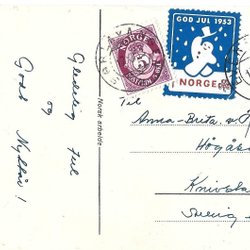 Gledelig Jul
og
Godt Nyttår!
Norsk arbeide
NORGE
GOD JUL 1952
NORGE
Til
Anna-Brita
Högås
Knivsta
Sverig